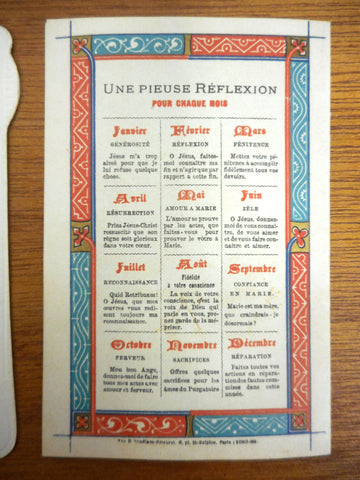 UNE PIEUSE RÉFLEXION
POUR CHAQUE MOIS
Janvier
GÉNÉROSITÉ
Jésus m'a trop
aimé pour que je
lui refuse quelque
chose.
Février
RÉFLEXION
O Jésus, faites-
moi connaître ma
fin et n'agir que par
rapport à cette fin.
Mars
PÉNITENCE
Mettez votre pé-
nitence à accomplir
fidèlement tous vos
devoirs.
Avril
RÉSURRECTION
Priez Jésus-Christ
ressuscité que son
règne soit glorieux
dans votre cœur.
Mai
AMOUR A MARIE
L'amour se prouve
par les actes, que
faites-vous pour
prouver le vôtre à
Marie.
Juin
ZÈLE
O Jésus, donnez-
moi de vous connaî-
tre, de vous aimer
et de vous faire con-
naître et aimer.
Juillet
RECONNAISSANCE
Quid Retribuam!
O Jésus, que mes
œuvres vous redi-
sent toujours ma
reconnaissance.
Août
Fidélité
à votre conscience
La voix de votre
conscience, c'est la
voix de Dieu qui
parle en vous, pre-
nez garde de la mé-
priser.
Septembre
CONFIANCE
EN MARIE.
Marie est ma mère,
que craindrais-je
désormais?
Octobre
FERVEUR
Mon bon Ange,
donnez-moi de faire
tous mes actes avec
amour et ferveur.
Novembre
SACRIFICES
Offrez quelques
sacrifices pour les
âmes du Purgatoire
Décembre
RÉPARATION
Faites toutes vos
actions en répara-
tion des fautes com-
mises dans cette
année.
Pl. St-Sulpice, Paris